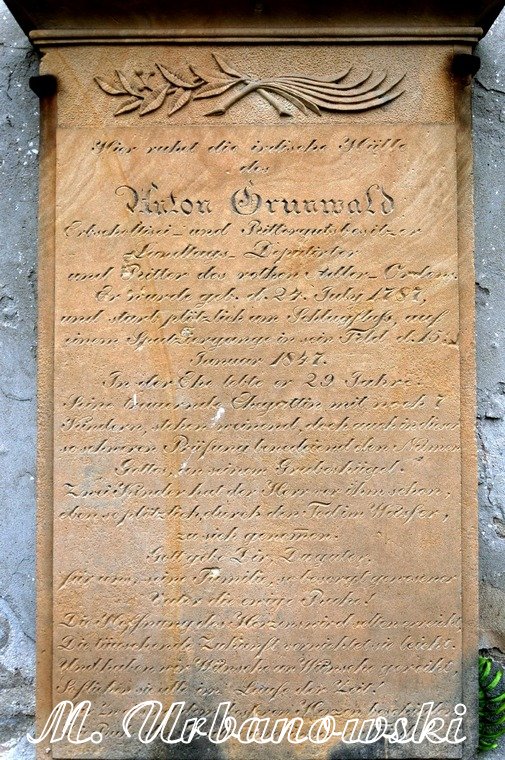 Hier ruht die irdische Hülle
des
Anton Grunwald
Erbscholtisei- und Rittergutsbesitzer
Landtags-Deputirter
und Ritter des rothen Adler-Ordens.
Er wurde geb. d. 24. July 1787,
und starb plötzlich am Schlagfluss, auf
einem Spatziergange in sein Feld d. 15.
Januar 1847.
In der Ehe lebte er 29 Jahre.
Seine trauernde Ehegattin mit noch 7
Kindern, stehen weinend, doch auch in dieser
so schweren Prüfung benedeiend den Namen
Gottes, an seinem Grabeshügel.
Zwei Kinder hat der Herr vor ihm schon,
eben so plötzlich, durch den Tod im Wasser,
zu sich genomen.
Gott gebe Dir, Du guter,
für uns, seine Familie, so besorgt gewesener
Vater die ewige Ruhe!
Die Hoffnung des Herzens wird selten erreicht
Die täuschende Zukunft vernichtet sie leicht.
Und haben wir Wünsche an Wünsche gereiht,
So fliehen sie alle im Laufe der Zeit!
Herzen
M. Urbanowski